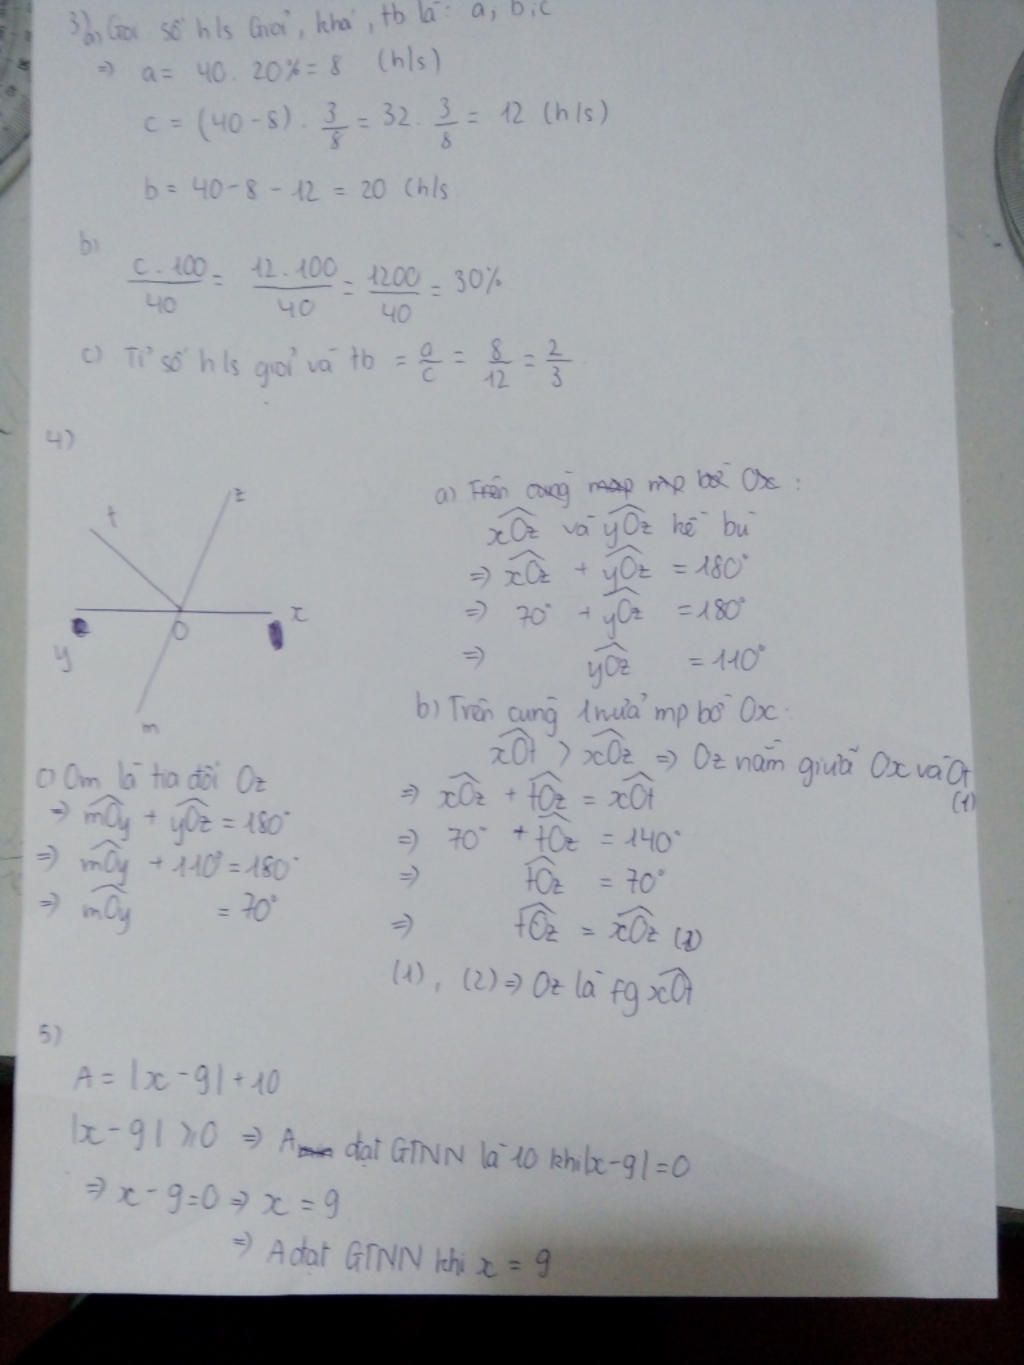 3) a, Gọi số h/s Giỏi, khá, tb là: a, b, c
=> a = 40 . 20% = 8 (h/s)
c = (40-8) . 3/8 = 32 . 3/8 = 12 (h/s)
b = 40 - 8 - 12 = 20 (h/s
b)
c . 100/40 = 12 . 100/40 = 1200/40 = 30%
c) Tỉ số h/s giỏi và tb = a/c = 8/12 = 2/3
4)
z
t
x
O
y
m
a) Trên cùng mp bờ Ox :
xOz và yOz kề bù
=> xOz + yOz = 180°
=> 70° + yOz = 180°
=> yOz = 110°
b) Trên cùng 1 nửa mp bờ Ox:
xOt > xOz => Oz nằm giữa Ox và Ot (1)
=> xOz + tOz = xOt
=> 70° + tOz = 140°
=> tOz = 70°
=> tOz = xOz (2)
(1), (2) => Oz là fg xOt
c) Om là tia đối Oz
=> mOy + yOz = 180°
=> mOy + 110° = 180°
=> mOy = 70°
5)
A = |x - 9| + 10
|x - 9| ≥ 0 => A đạt GTNN là 10 khi |x-9| = 0
=> x - 9 = 0 => x = 9
=> A đạt GTNN khi x = 9